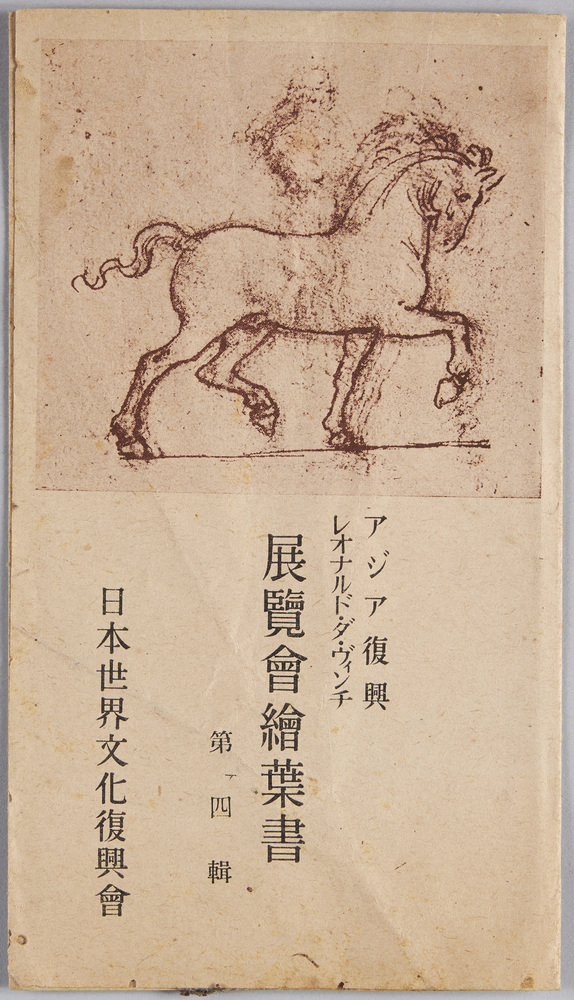 アジア復興
レオナルド・ダ・ヴィンチ
展覽會繪葉書
第四輯
日本世界文化復興會